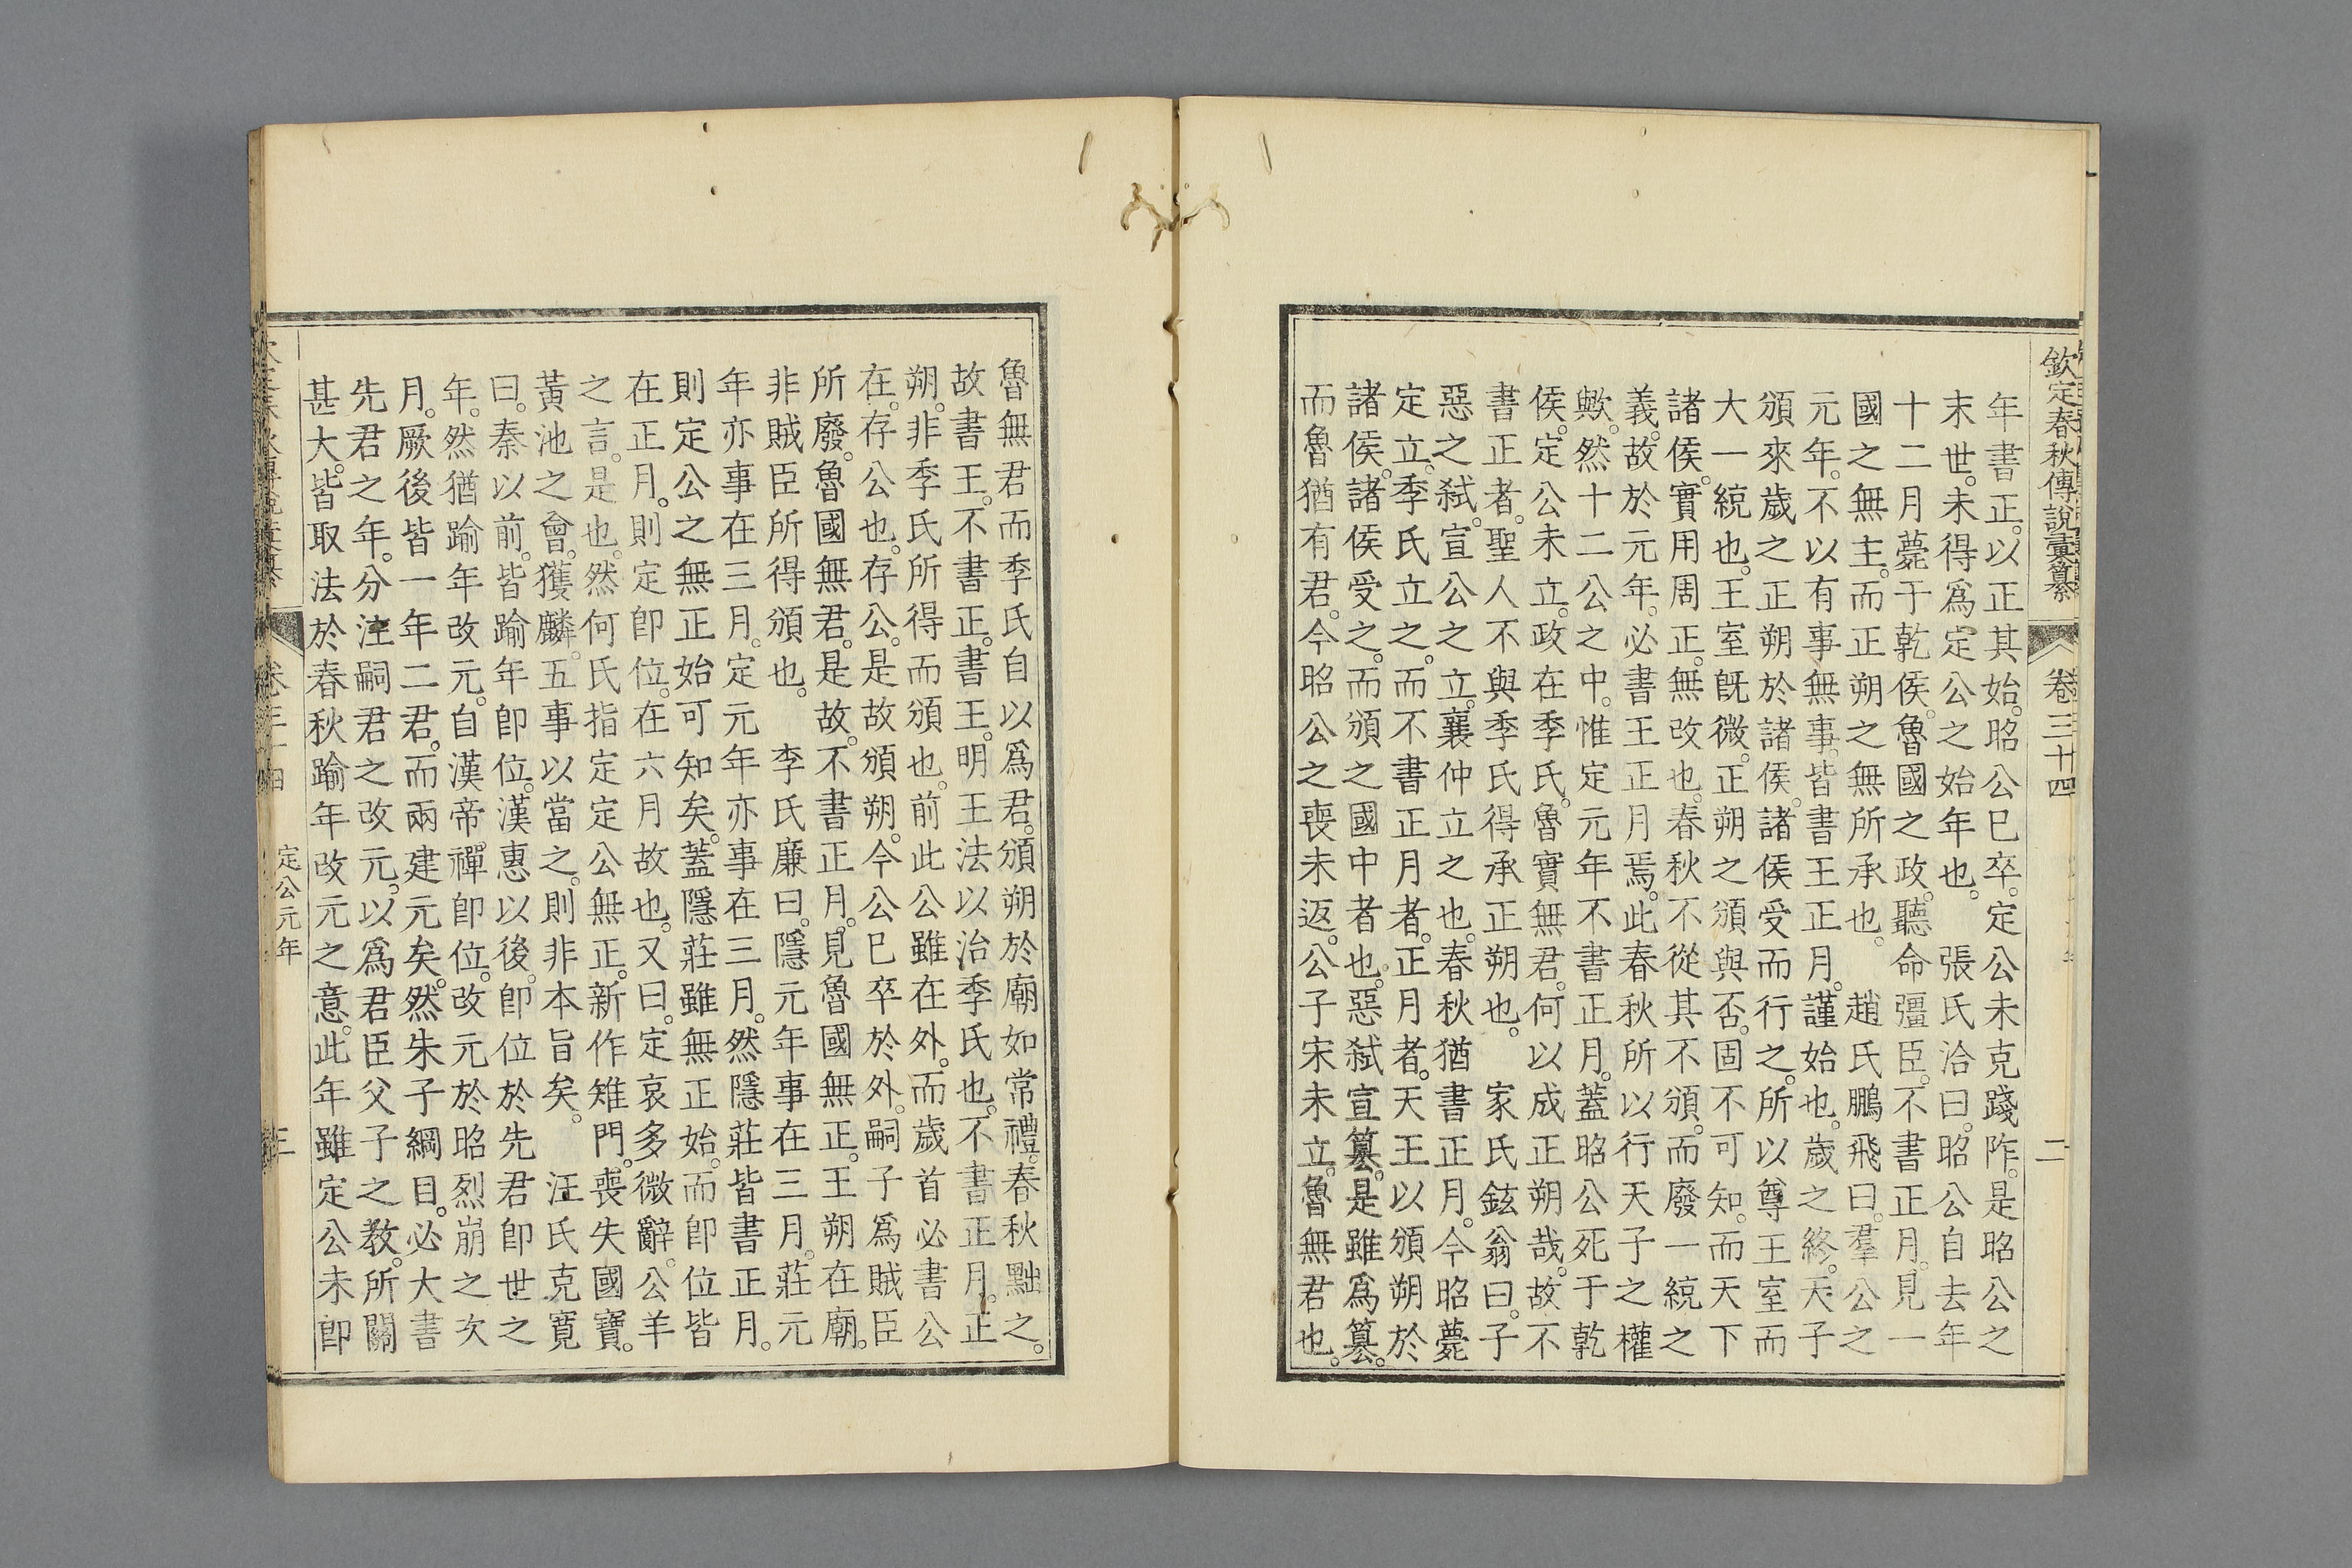 欽定春秋傳說彙纂
卷三十四
二
年書正。以正其始。昭公已卒。定公未克踐阼。是昭公之
末世。未得爲定公之始年也。　張氏洽曰。昭公自去年
十二月薨于乾侯。魯國之政。聽命彊臣。不書正月。見一
國之無主。而正朔之無所承也。　趙氏鵬飛曰。羣公之
元年。不以有事無事。皆書王正月。謹始也。歲之終。天子
頒來歲之正朔於諸侯。諸侯受而行之。所以尊王室而
大一統也。王室旣微。正朔之頒與否。固不可知。而天下
諸侯。實用周正。無改也。春秋不從其不頒。而廢一統之
義。故於元年。必書王正月焉。此春秋所以行天子之權
歟。然十二公之中。惟定元年不書正月。蓋昭公死于乾
侯。定公未立。政在季氏。魯實無君。何以成正朔哉。故不
書正者。聖人不與季氏得承正朔也。　家氏鉉翁曰。子
惡之弑。宣公之立。襄仲立之也。春秋猶書正月。今昭薨
定立。季氏立之。而不書正月者。正月者。天王以頒朔於
諸侯。諸侯受之。而頒之國中者也。惡弑宣篡。是雖爲篡。
而魯猶有君。今昭公之喪未返。公子宋未立。魯無君也。
魯無君而季氏自以爲君。頒朔於廟如常禮。春秋黜之。
故書王。不書正。書王。明王法以治季氏也。不書正月。正
朔。非季氏所得而頒也。前此公雖在外。而歲首必書公
在。存公也。存公。是故頒朔。今公已卒於外。嗣子爲賊臣
所廢。魯國無君。是故。不書正月。見魯國無正。王朔在廟。
非賊臣所得頒也。　李氏廉曰。隱元年事在三月。莊元
年亦事在三月。定元年亦事在三月。然隱莊皆書正月。
則定公之無正始可知矣。蓋隱莊雖無正始。而卽位皆
在正月。則定卽位。在六月故也。又曰。定哀多微辭。公羊
之言。是也。然何氏指定定公無正。新作雉門。喪失國寶。
黃池之會。獲麟。五事以當之。則非本旨矣。　汪氏克寬
曰。秦以前。皆踰年卽位。漢惠以後。卽位於先君卽世之
年。然猶踰年改元。自漢帝。禪卽位。改元於昭烈崩之次
月。厥後皆一年二君。而兩建元矣。然朱子綱目。必大書
先君之年。分注嗣君之改元。以爲君臣父子之教。所關
甚大。皆取法於春秋踰年改元之意。此年雖定公未卽
定公元年
三